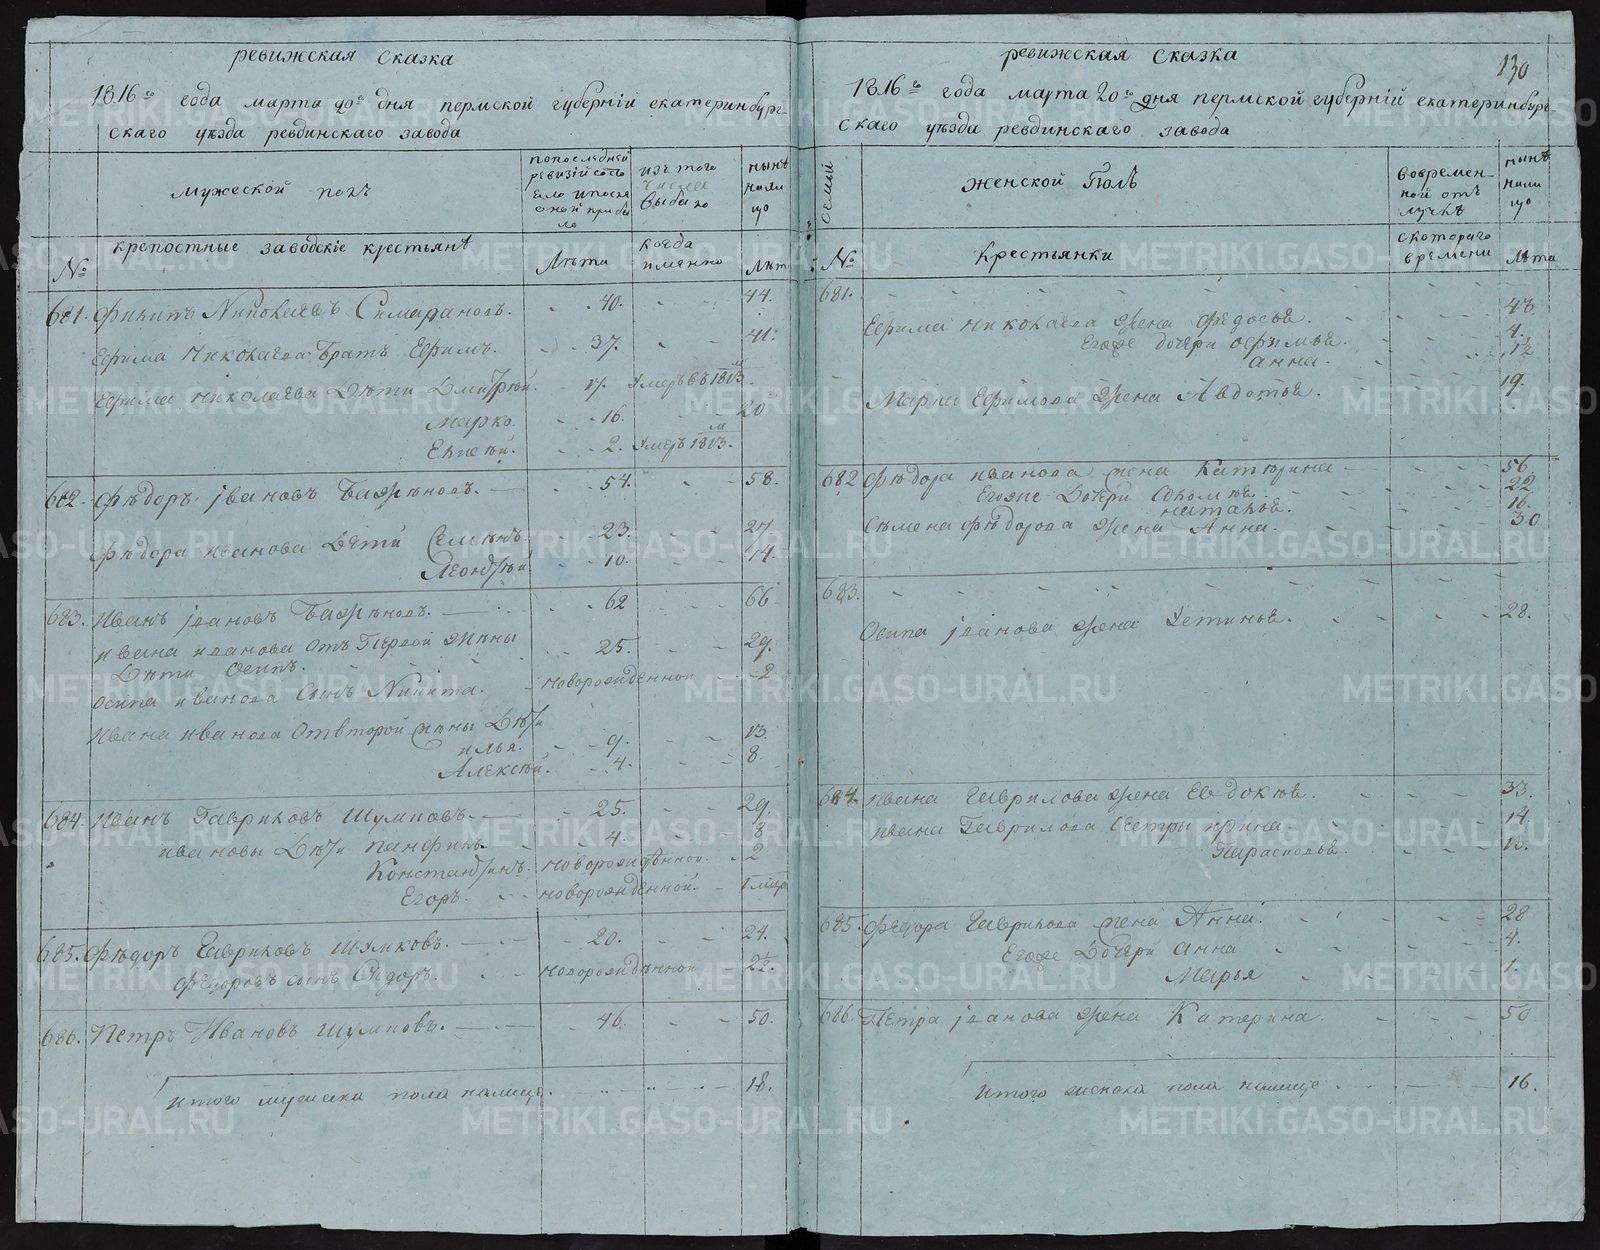 ревижская сказка
1816го года марта 20го дня пермской губернiй екатеринбург-
скаго уѣзда ревдинскаго завода
мужеской полъ
попоследней ревизiй состо
яло ипосле
оной прибы
ло
изъ того
числа
выбыло
нынѣ
нали
цо
№
крепостные заводскiе крестьянѣ
Лѣта
когда
имянно
Лѣта
681. Филипъ Николаевъ Симарановъ. 40. 44.
Ефима Николаева Братъ Ефимъ. 37. 41.
Ефима николаева Дѣти Дмитрѣй. 17. Умеръ въ 1813м
Марко. 16. 20
Елисѣй. 2. Умеръ 1813м
682. Фѣдоръ iвановъ Бажѣновъ. 54. 58.
Фѣдора иванова Дѣти Семѣнъ. 23. 27
Леонтѣй 10. 14.
683. Иванъ iвановъ Бажѣновъ. 62 66
ивана иванова отъ Первой жѣны 25. 29.
Дѣти Осипъ.
осипа иванова сынъ Никита. новорожденной 2
Ивана иванова отвторой жены Дѣти
илья. 9. 13.
Алексѣй. 4. 8.
684. Иванъ Гавриловъ Шумиловъ. 25. 29.
ивановы Дѣти панфилъ. 4. 8
Константинъ. новорожденной. 2
Егоръ. новорожденной. 1 мце
685. Фѣдоръ Гавриловъ Шумковъ. 20. 24.
Фѣдоровъ сынъ Сидоръ. новорожденной 2½.
686. Петръ Ивановъ Шумиловъ. 46. 50.
итого мужеска пола налицо. 18.
ревижская сказка
130
1816го года марта 20го дня пермской губернiй екатеринбург-
скаго уѣзда ревдинскаго завода
семьи
женской Полъ
вовремен-
ной отъ
лучкѣ
нынѣ
нали
цо
№
Крестьянки
скотораго
времени
Лѣта
681.
Ефима николаева жена Федосья. 43.
Егоже дочери ефимья. 4.
анна. 1½
Марка Ефимова жена Авдотья. 19.
682 Фѣдора иванова жена Катерина 56.
Егоже Дочери Соломѣя 22
наталья. 16.
Семена фѣдорова жена Анна. 30
683.
Осипа iванова жена Устинья. 28.
684. ивана Гаврилова жена Евдокiя. 33.
ивана Гаврилова Сестры ирина. 14.
Парасковья. 10.
685. Федора Гаврилова жена Анна. 28
Егоже Дочери анна 4.
Марья 1.
686. Петра iванова жена Катерина. 50
итого женска пола налицо 16.
METRIKI.GASO-URAL.RU